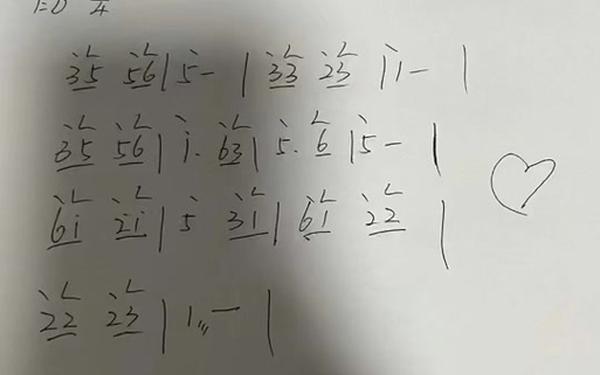 1=D 4
35 56 | 5 - | 33 23 | i - |
35 56 | i. 63 | 5. 6 | 5 - |
6i 2i | 5 31 | 61 22 |
22 23 | 1 - |